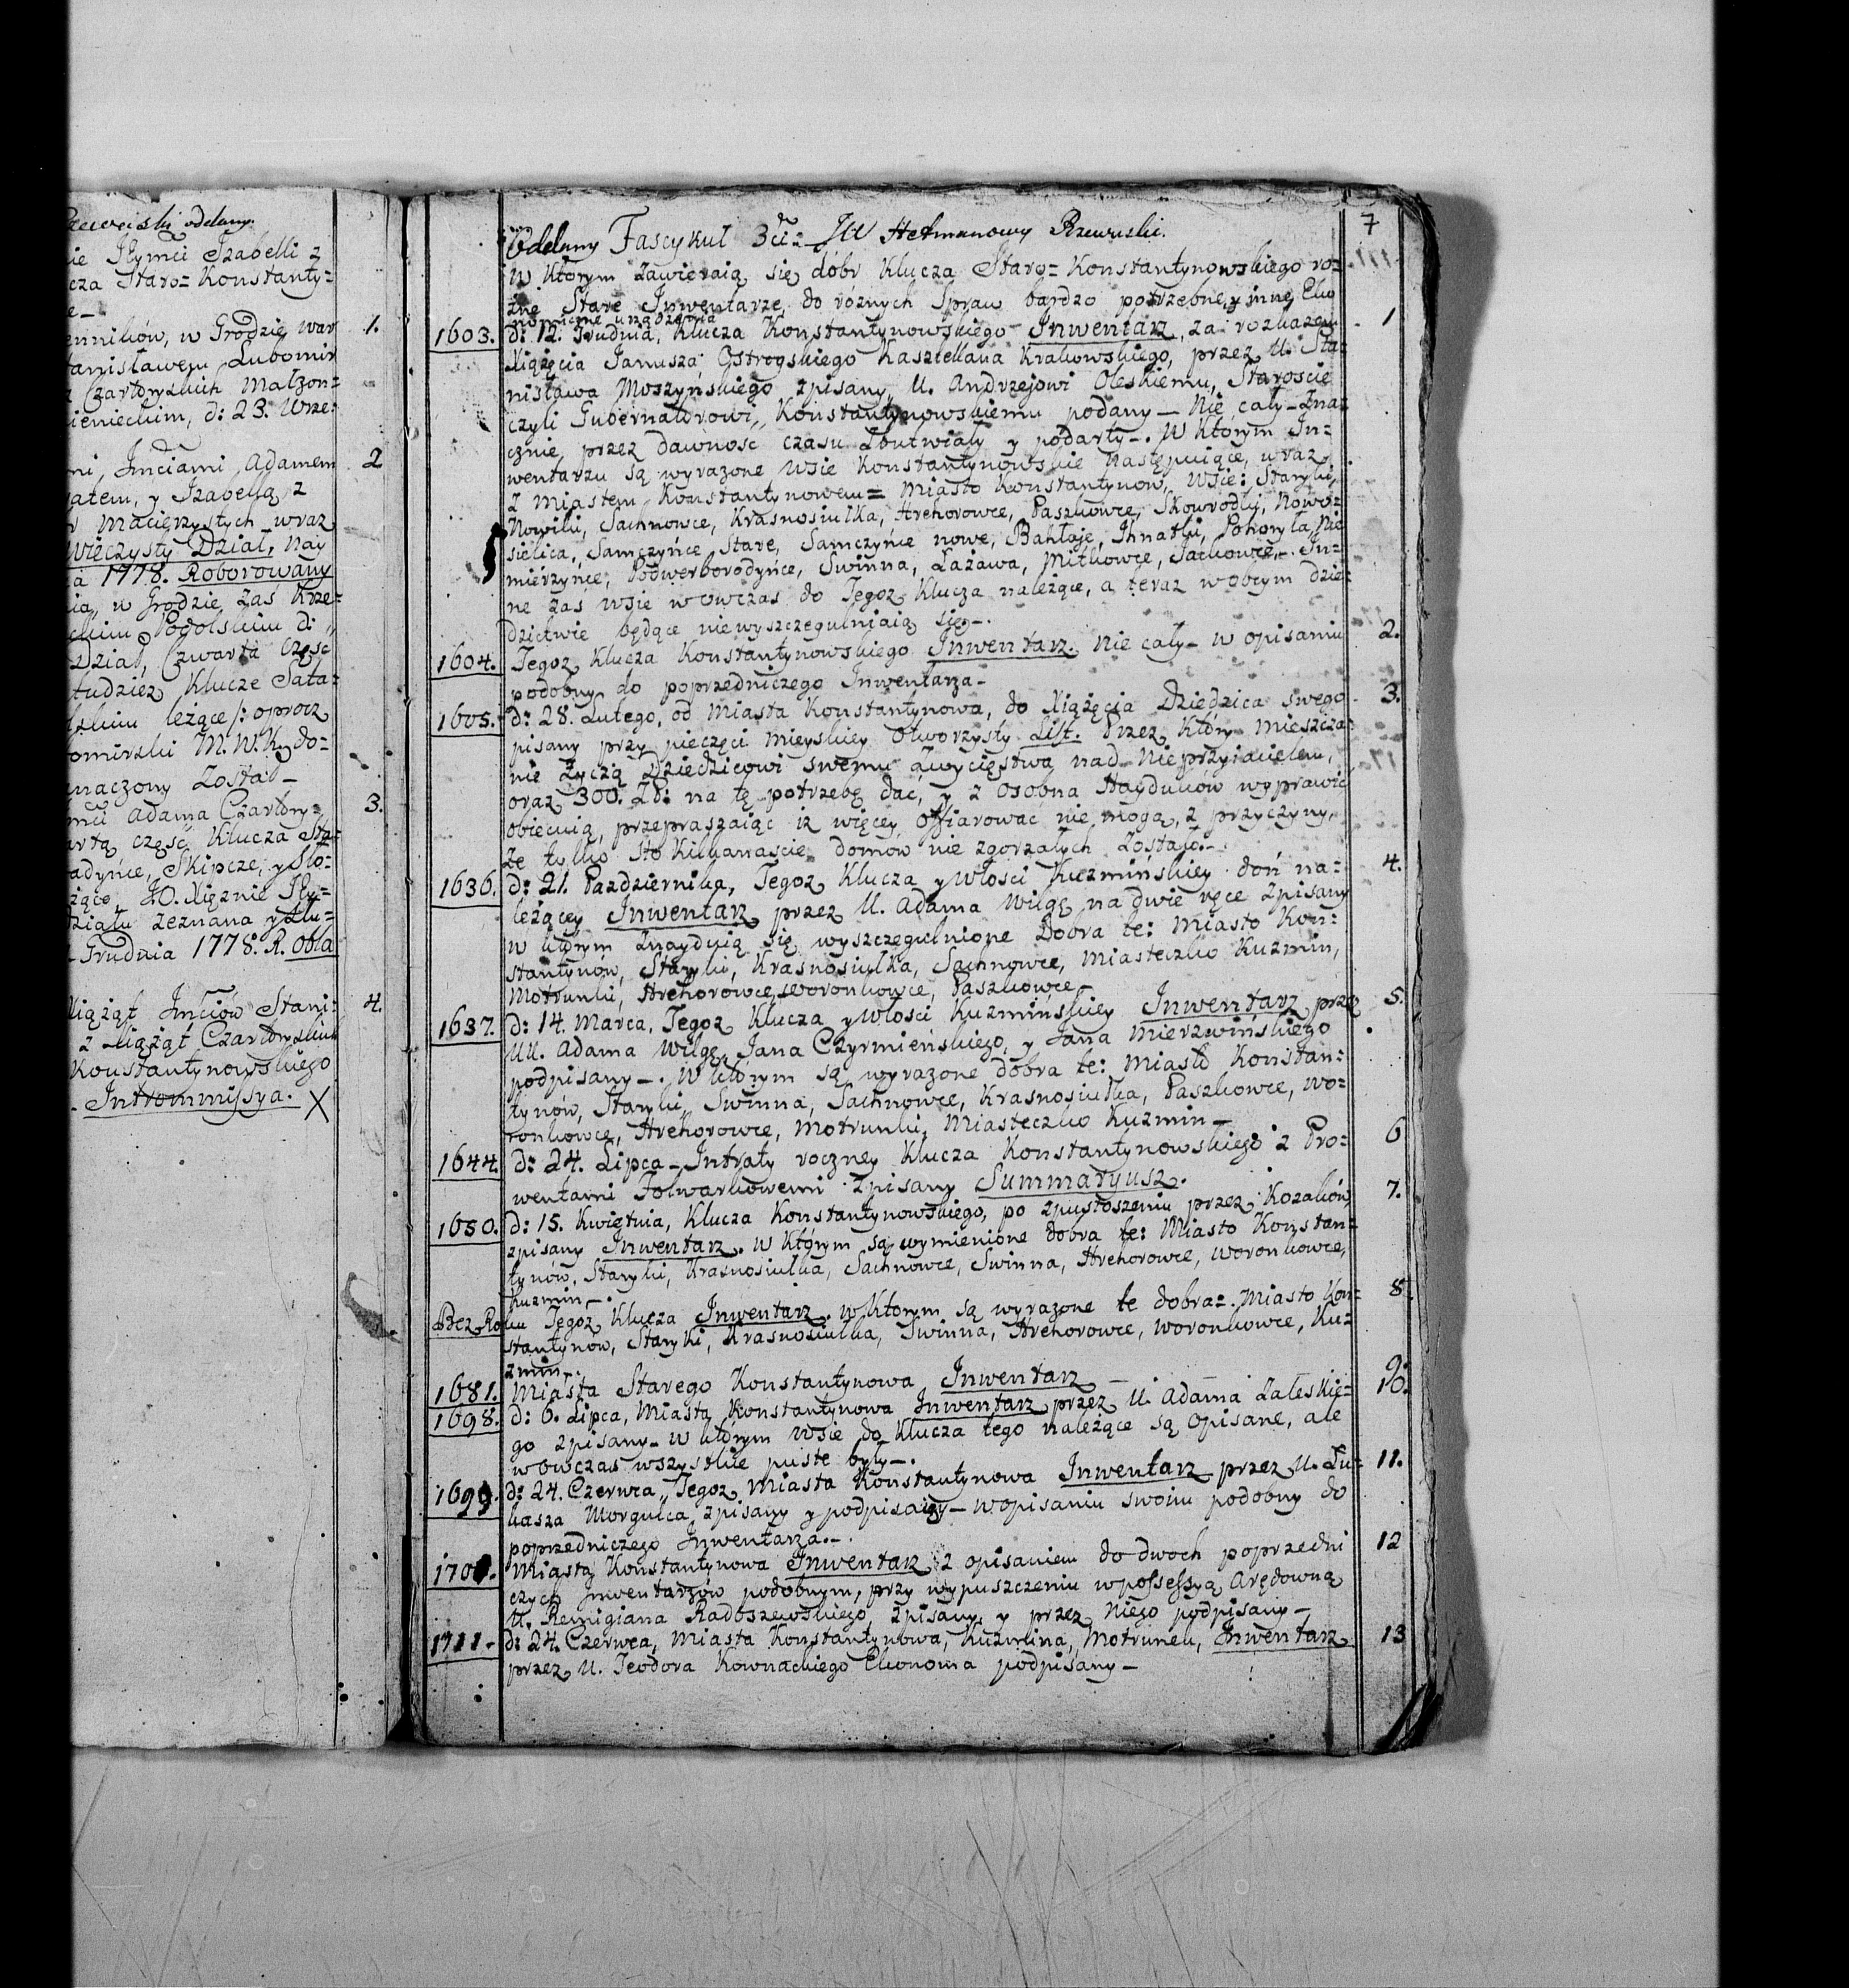 Rzewuski oddany.
ie Jłymci Izabelli z
cza Staro=Konstanty=
e_
ennikow, w Grodzie war 1.
tanisławem Lubomir
z Czartoryskich Małżon=
ienieckim, d: 23. Wrze:
mi, Imciami Adamem 2
gatem, y Izabellą z
r Macierzystych wraz
Wieczysty Dział, Nay
ia 1778. Roborowany
nia, w Grodzie zas Krze=
ckim Podolskim d:
Dział, Czwarta Częsc
tudziez Klucze Sata=
lskim leżące/: oprocz
omirski M. W. K. do=
naczony Został_
mci Adama Czartory= 3.
artą częsc Klucza Sta=
adyńce, Skipcze, y Sło=
żące, JO. Xiężnie Jły=
działu zeznana y Lu=
_Grudnia 1778. R. Obla
Xiążąt Imciow Stani= 4.
z Xiążąt Czartoryskich
Konstantynowskiego
_Intrommissya. X
7
Oddany Fascykuł 3ci= JW Hetmanowy Rzewuski.
w Którym zawieraią się dóbr Klucza Staro=Konstantynowskiego ro=
żne Stare Inwentarze, do rożnych Spraw bardzo potrzebne, y inne Eko
nomiczne urządzenia
1603. d: 12. Grudnia, Klucza Konstantynowskiego Inwentarz, za rozkazem 1
Xiążęcia Janusza Ostrogskiego Kasztellana Krakowskiego, przez U. Sta=
nisława Moszyńskiego zpisany, U. Andrzejowi Oleskiemu, Staroscie
czyli Gubernatorowi Konstantynowskiemu podany_ Nie cały_ Zna=
cznie, przez dawnosc czasu Zbutwiały y podarty_. W Ktorym In=
wentarzu są wyrażone Wsie Konstantynowskie następuiące, wraz
z Miastem Konstantynowem= Miasto Konstantynow, Wsie: Staryki,
Nowiki, Sachnowce, Krasnosiułka, Hrehorowce, Paszkowce, Skowrodki, Nowo=
sielica, Samczyńce Stare, Samczyńce nowe, Bahłaje, Ihnatki, Pohoryła, Nie
mierzyńce, Podwerborodyńce, Swinna, Łażawa, Mitkowce, Sachowce_. In=
ne zaś wsie wowczas do Tegoz Klucza należące, a teraz w obcym dzie=
dzictwie będące niewyszczegulniaią się_.
1604. Tegoz Klucza Konstantynowskiego Inwentarz. Nie cały_ w opisaniu 2.
podobny do poprzedniczego Inwentarza_
1605. d: 28. Lutego, od Miasta Konstantynowa, do Xiążęcia Dziedzica swego 3.
pisany przy pieczęci Mieyskiey Otworzysty List. Przez Który Mieszcza=
nie Życzą Dziedzicowi swemu zwycięstwa nad Nieprzyiacielem,
oraz 300. Zł: na tę potrzebę dać, y z osobna Haydukow wyprawić
obiecuią, przepraszaiąc iż więcey offiarować nie mogą, z przyczyny,
że tylko Sto Kilkanascie domow nie zgorzałych Zostało_.
1636. d: 21. Pazdziernika, Tegoz Klucza y Włosci Kuzmińskiey doń na= 4.
leżącey Inwentarz przez U. Adama Wilgę na dwie ręce Zpisany
w którym Znayduią się wyszczegulnione Dobra te: Miasto Kon=
stantynów, Staryki, Krasnosiułka, Sachnowce, Miasteczko Kuzmin,
Motrunki, Hrehorowce, Woronkowce, Paszkowce_
1637. d: 14. Marca, Tegoz Klucza y Włosci Kuzmińskiey Inwentarz przez 5.
UU. Adama Wilgę, Jana Czyrmieńskiego, y Jana Mierzwińskiego
podpisany_. W którym są wyrażone dobra te: Miasto Konstan=
tynów, Staryki, Swinna, Sachnowce, Krasnosiułka, Paszkowce, Wo=
ronkowce, Hrehorowce, Motrunki, Miasteczko Kuzmin_
1644. d: 24. Lipca_ Intraty roczney Klucza Konstantynowskiego z Pro= 6
wentami Folwarkowemi zpisany Summaryusz.
1650. d: 15. Kwietnia, Klucza Konstantynowskiego, po zpustoszeniu przez Kozaków, 7.
zpisany Inwentarz. w Którym są wymienione dobra te: Miasto Konstan=
tynów, Staryki, Krasnosiułka, Sachnowce, Swinna, Hrehorowce, Woronkowce,
Kuzmin_.
Bez Roku Tegoz Klucza Inwentarz. w Ktorym są wyrażone te dobra=. Miasto Kon= 8.
stantynow, Staryki, Krasnosiułka, Swinna, Hrehorowce, Woronkowce, Ku=
zmin_.
1681. Miasta Starego Konstantynowa Inwentarz_ 9.
1698. d: 6. Lipca, Miasta Konstantynowa Inwentarz przez U. Adama Zaleskie= 10.
go zpisany_ w którym wsie do Klucza tego należące są opisane, ale
wowczas wszystkie puste były_.
1699. d: 24. Czerwca, Tegoz Miasta Konstantynowa Inwentarz przez U. Łu= 11.
kasza Morgulca, zpisany y podpisany_ w opisaniu swoim podobny do
poprzedniczego Inwentarza._.
1701. Miasta Konstantynowa Inwentarz z opisaniem do dwoch poprzedni 12
czych Inwentarzów podobnym, przy wypuszczeniu w possessyą Arędowną
U. Remigiana Radoszewskiego, zpisany y przez Niego podpisany_
1711_ d: 24. Czerwca, Miasta Konstantynowa, Kuzmina, Motrunek, Inwentarz 13
przez U. Teodora Kownackiego Ekonoma podpisany_